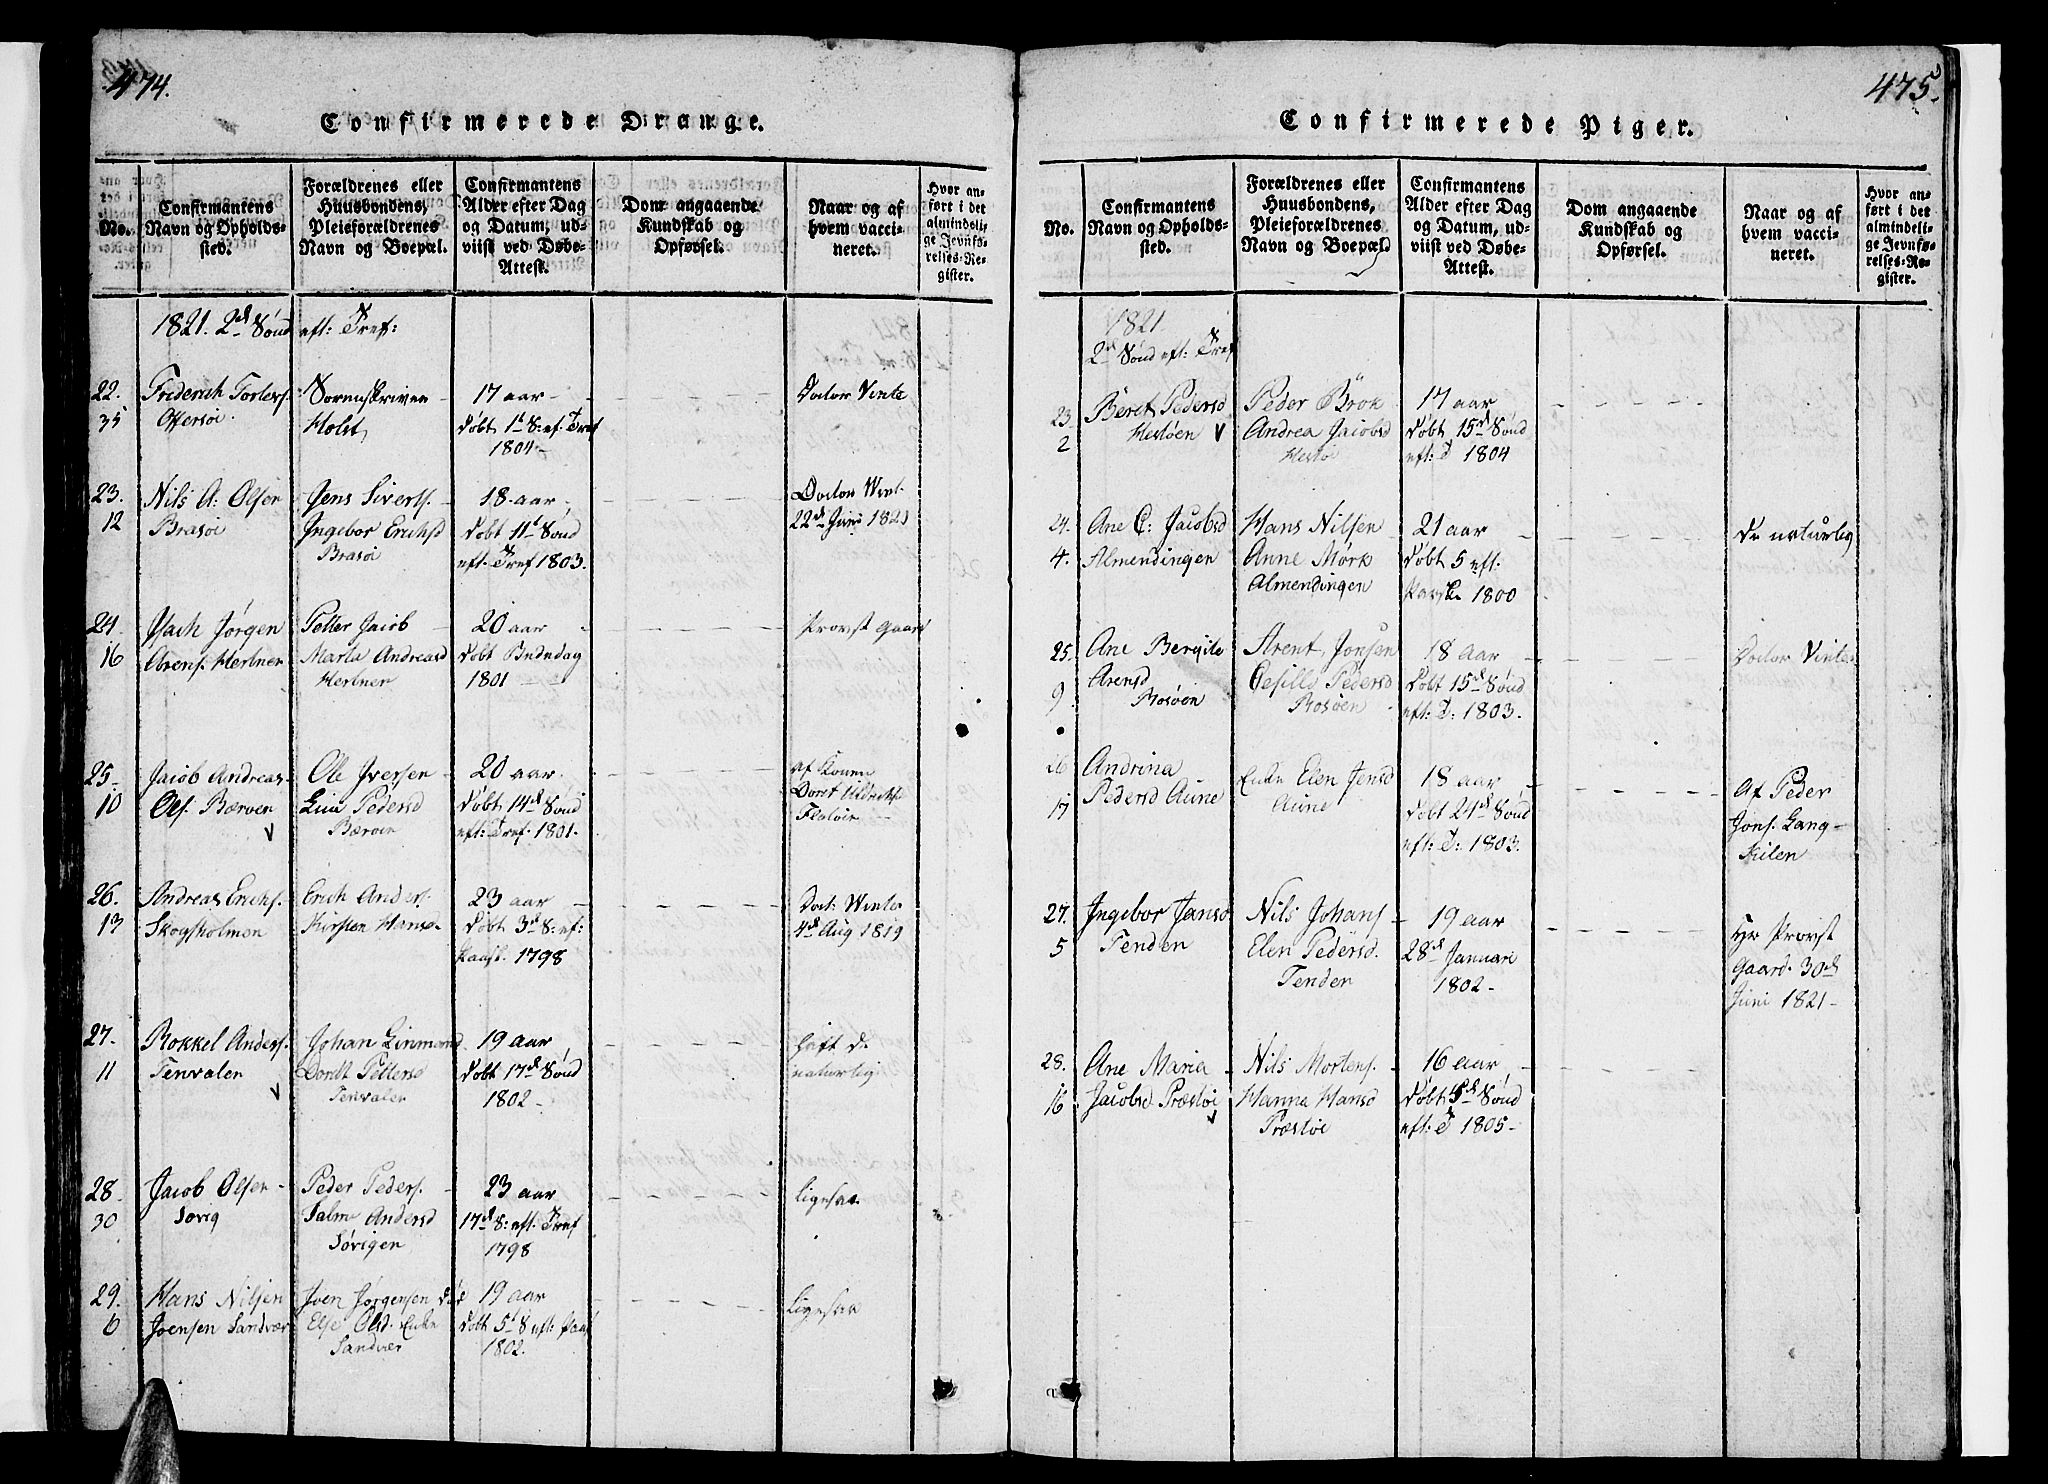 474.
Confirmerede Drange.
No.
Confirmantens
Navn og Opholds-
sted.
Forældrenes eller
Huusbondens,
Pleieforældrenes
Navn og Boepæl.
Confirmantens
Alder efter Dag
og Datum, ud-
viist ved Døbe-
Attest.
Dom angaaende
Kundskab og
Opførsel.
Naar og af
hvem vacci-
neret.
Hvor an-
ført i det
almindeli-
ge Jevnfø-
relses-Re-
gister.
1821. 2d Sønd eft: Tref:
22.
35
Friderich Torlers.
Offersøi.
Sorenskriver
Holst
17 aar
døbt 1t S: ef. Tref
1804
Doctor Vinte
23.
12
Nils A: Olsen
Brasøi
Jens Siverts.
Ingebor Erichsd
Brasøi
18 aar
døbt 11t Sønd
eft. Tref 1803.
Doctor Wint.
22d Juni 1821
24.
16
Isach Jørgen
Arens. Hestnes
Petter Jacob
Marta Andreasd
Hestnes
20 aar
døbt Bededag
1801
Provst Gaard
25.
10
Jacob Andreas
Ols. Bærøen
Ole Iversen
Line Pedersd
Bærøen
20 aar
døbt 14d Sønd
eft: Tref. 1801.
af Konen
Doret Uldrichs
Fløtøir
26.
13
Andreas Erichs.
Skogsholmen
Erich Anders.
Kirsten Hansd.
23 aar
døbt 3d S: ef:
Paask. 1798
Doct: Winter
4d Aug 1819
27.
11
Rokkel Anders.
Tenvalen
Johan Linmand
Dordt Pettersd
Tenvalen
19 aar
døbt 17d Sønd
1802
haft d.
naturlig
28.
30
Jacob Olsen
Sørvig
Peder Peders.
Salm Andersd
Sørvigen
23 aar
17d S: eft. Tref
1798
Ligesaa
29.
6
Hans Nilsen
Joensen Sandvær
Joen Jørgensen død
Else Olsd. Enke
Sandvær
19 aar
døbt 5t S eft: Paas
1802.
Ligesaa
475.
Confirmerede Piger.
No.
Confirmantens
Navn og Opholds-
sted.
Forældrenes eller
Huusbondens,
Pleieforældrenes
Navn og Boepæl.
Confirmantens
Alder efter Dag
og Datum, ud-
viist ved Døbe-
Attest.
Dom angaaende
Kundskab og
Opførsel.
Naar og af
hvem vacci-
neret.
Hvor an-
ført i det
almindeli-
ge Jevnfø-
relses-Re-
gister.
1821.
2d Sønd eft: Tref
23.
2
Beret Pedersd
Hestøen
Peder Brok
Andrea Jacobsd
Hestøi
17 aar
døbt 15d Sønd
eft: T 1804
24.
4.
Ane C: Jacobsd
Almendingen
Hans Nilsen
Anne Mørk
Almendingen
21 aar
døbt 5 eft.
Paask. 1800
de naturlig
25.
9
Ane Bergite
Arensd
Rosøen
Arent Jonsen
Gesille Pedersd
Rosøen
18 aar
døbt 15d Sønd
eft: T: 1803.
Doctor Vinter
26
17
Andrina
Pedersd Aune
Enke Elen Jensd
Aune
18 aar
døbt 24d Sønd
eft: T: 1803.
Af Peder
Jons. Lang-
Kilen
27.
5
Ingebor Jansd
Tenden
Nils Johans.
Elen Pedersd.
Tenden
19 aar
28d Januari
1802
Hr Provst
Gaard. 30d
Juni 1821
28.
16
Ane Maria
Jacobsd Præstøi
Nils Mortens.
Hanna Hansd
Præstøi
16 aar
døbt 5d Sønd
eft: T 1805